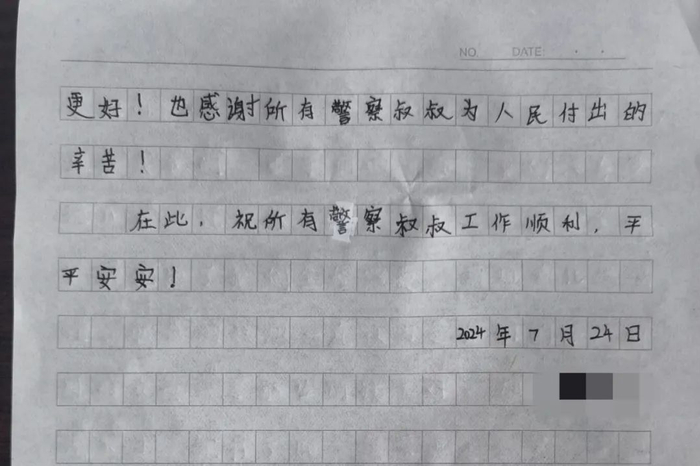 NO. DATE: · ·
更好！也感谢所有警察叔叔为人民付出的
辛苦！
在此，祝所有警察叔叔工作顺利，平
平安安！
2024年7月24日